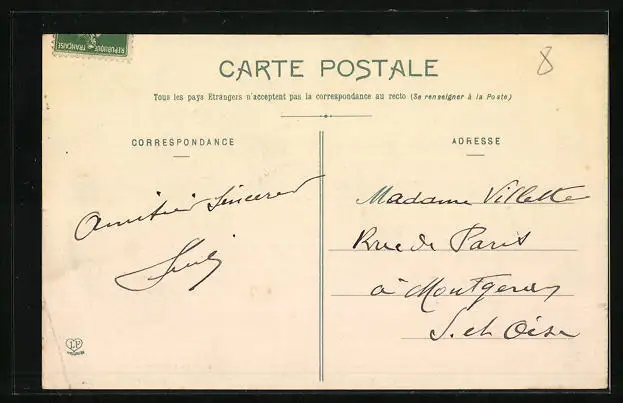 REPUBLIQUE FRANÇAISE
8
CARTE POSTALE
Tous les pays Etrangers n'acceptent pas la correspondance au recto (Se renseigner à la Poste)
CORRESPONDANCE
ADRESSE
Amitiés sincères
Madame Villette
Rue de Paris
à Montgeron
S. et Oise
LP